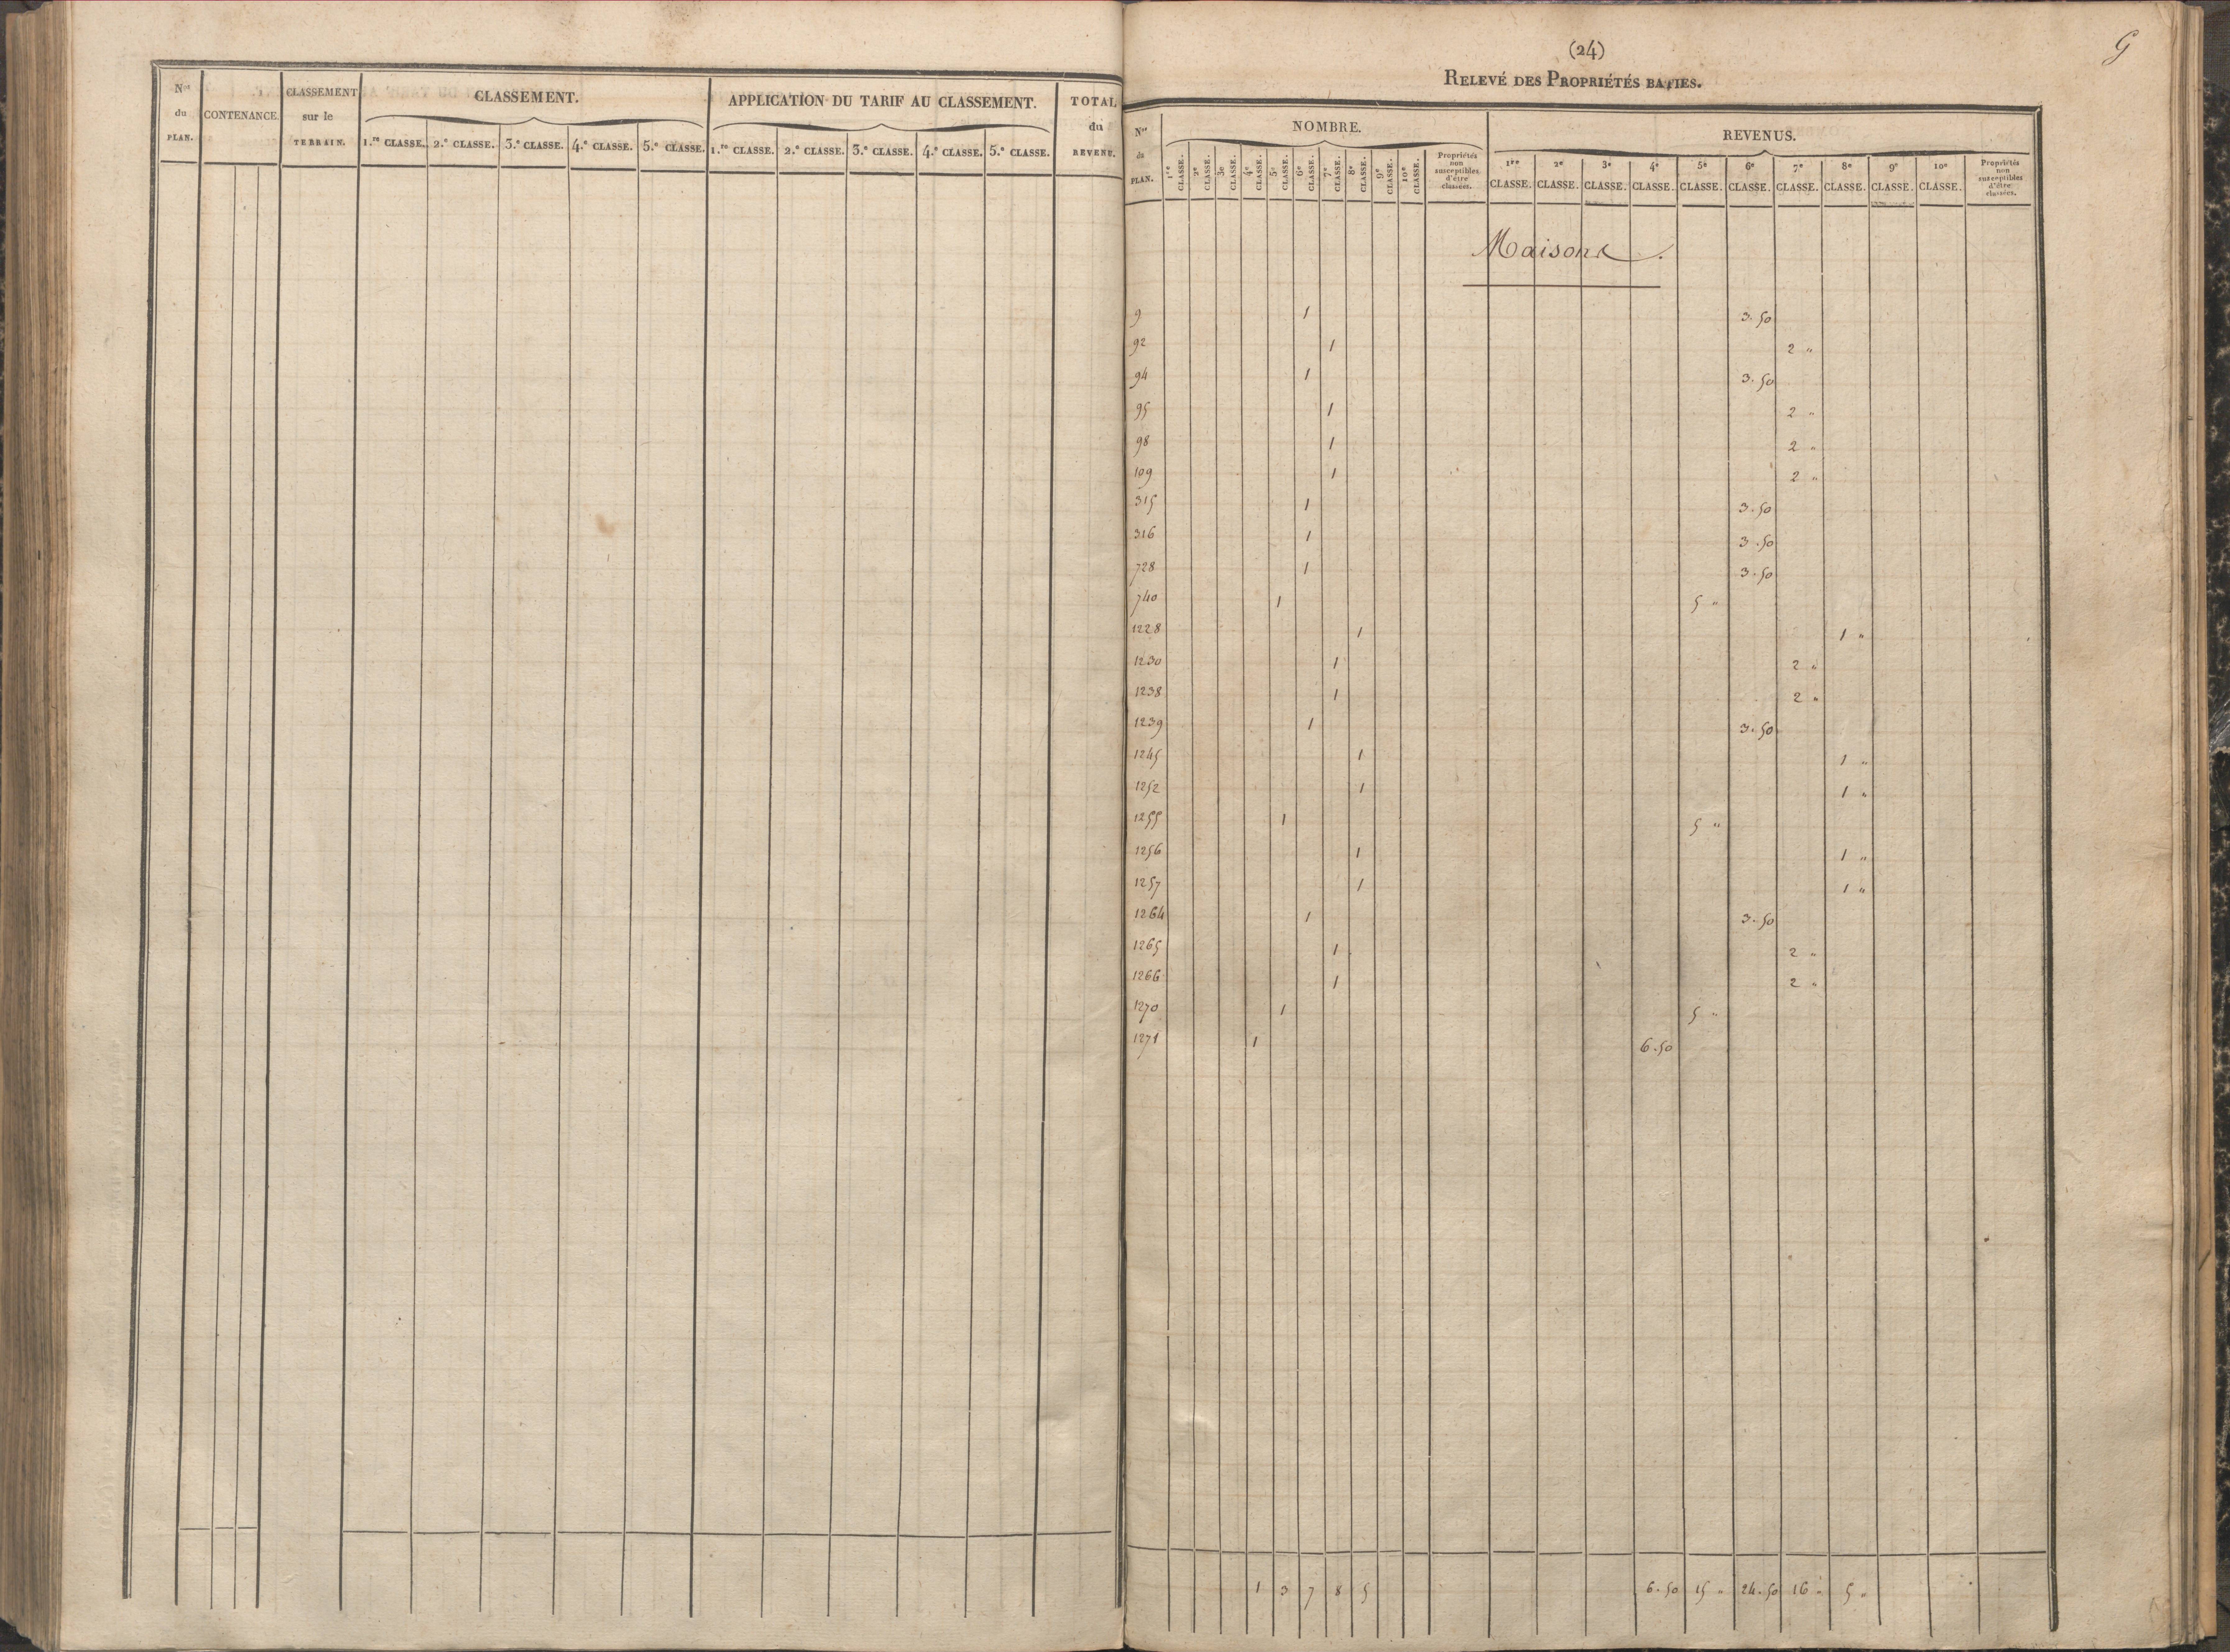 Nos du PLAN.
CONTENANCE.
CLASSEMENT sur le TERRAIN.
CLASSEMENT.
1.re CLASSE. 2.e CLASSE. 3.e CLASSE. 4.e CLASSE. 5.e CLASSE.
APPLICATION DU TARIF AU CLASSEMENT.
1.re CLASSE. 2.e CLASSE. 3.e CLASSE. 4.e CLASSE. 5.e CLASSE.
TOTAL du REVENU.
G
(24)
RELEVÉ DES PROPRIÉTÉS BATIES.
Nos du PLAN.
NOMBRE.
1re CLASSE. 2e CLASSE. 3e CLASSE. 4e CLASSE. 5e CLASSE. 6e CLASSE. 7e CLASSE. 8e CLASSE. 9e CLASSE. 10e CLASSE. Propriétés non susceptibles d'être classées.
REVENUS.
1re CLASSE. 2e CLASSE. 3e CLASSE. 4e CLASSE. 5e CLASSE. 6e CLASSE. 7e CLASSE. 8e CLASSE. 9e CLASSE. 10e CLASSE. Propriétés non susceptibles d'être classées.
Maisons.
9 1 3.50
92 1 2 "
94 1 3.50
95 1 2 "
98 1 2 "
109 1 2 "
315 1 3.50
316 1 3.50
728 1 3.50
740 1 5 "
1228 1 1 "
1230 1 2 "
1238 1 2 "
1239 1 3.50
1245 1 1 "
1252 1 1 "
1255 1 5 "
1256 1 1 "
1257 1 1 "
1264 1 3.50
1265 1 2 "
1266 1 2 "
1270 1 5 "
1271 1 6.50
1 3 7 8 5 6.50 15 " 24.50 16 " 5 "